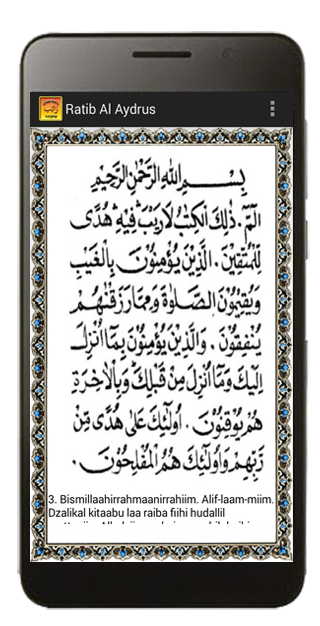 Ratib Al Aydrus
بِسْــــمِ اللهِ الرَّحْمٰنِ الرَّحِيْمِ
الٓمّٓ. ذٰلِكَ الْكِتٰبُ لَا رَيْبَ فِيْهِ هُدًى
لِلْمُتَّقِيْنَ. الَّذِيْنَ يُؤْمِنُوْنَ بِالْغَيْبِ
وَيُقِيْمُوْنَ الصَّلٰوةَ وَمِمَّا رَزَقْنٰهُمْ
يُنْفِقُوْنَ. وَالَّذِيْنَ يُؤْمِنُوْنَ بِمَا اُنْزِلَ
اِلَيْكَ وَمَا اُنْزِلَ مِنْ قَبْلِكَ وَبِالْاٰخِرَةِ
هُمْ يُوْقِنُوْنَ. اُولٰئِكَ عَلٰى هُدًى مِّنْ
رَّبِّهِمْ وَاُولٰئِكَ هُمُ الْمُفْلِحُوْنَ.
3. Bismillaahirrahmaanirrahiim. Alif-laam-miim.
Dzalikal kitaabu laa raiba fiihi hudallil